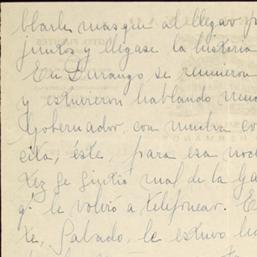 blarle, mas que al llegar
juntos y dígase la historia
En Durango se reunieron
y estuvieron hablando
Gobernador, con nuestra
cita, éste, para esa noche
tez se sintió mal de la
q. le volvió a telefonear. E
te, Sábado, le estuvo